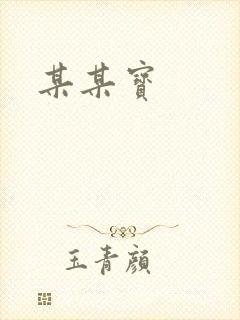 某某寶
玉青顏